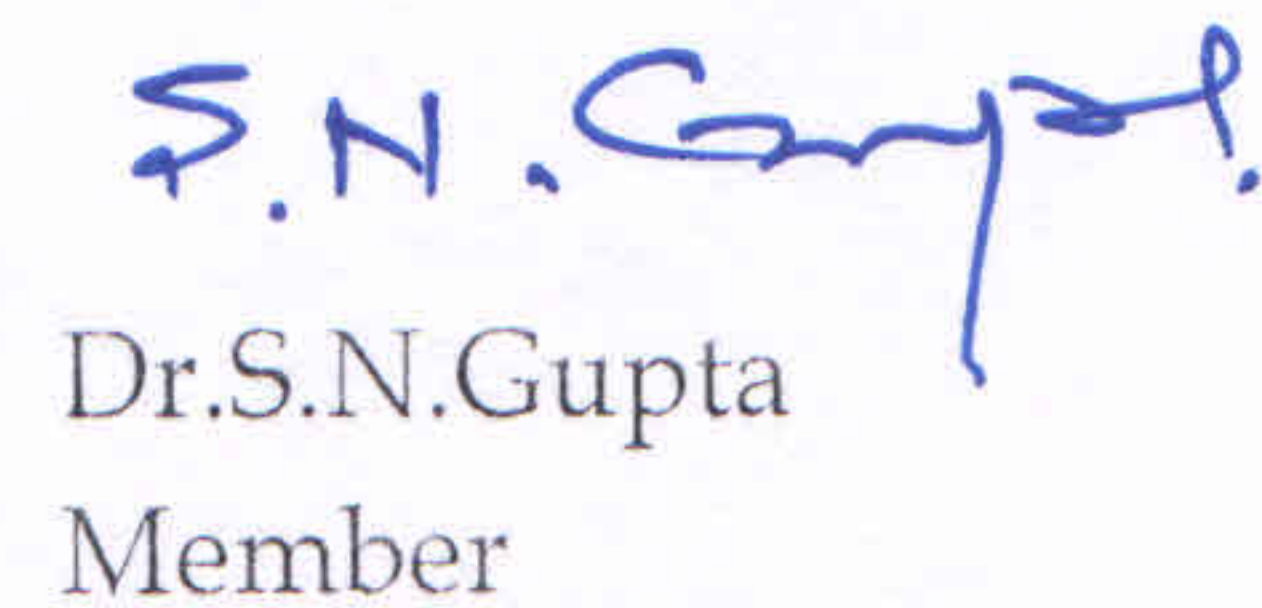 S.N. Gupta.
Dr.S.N.Gupta
Member